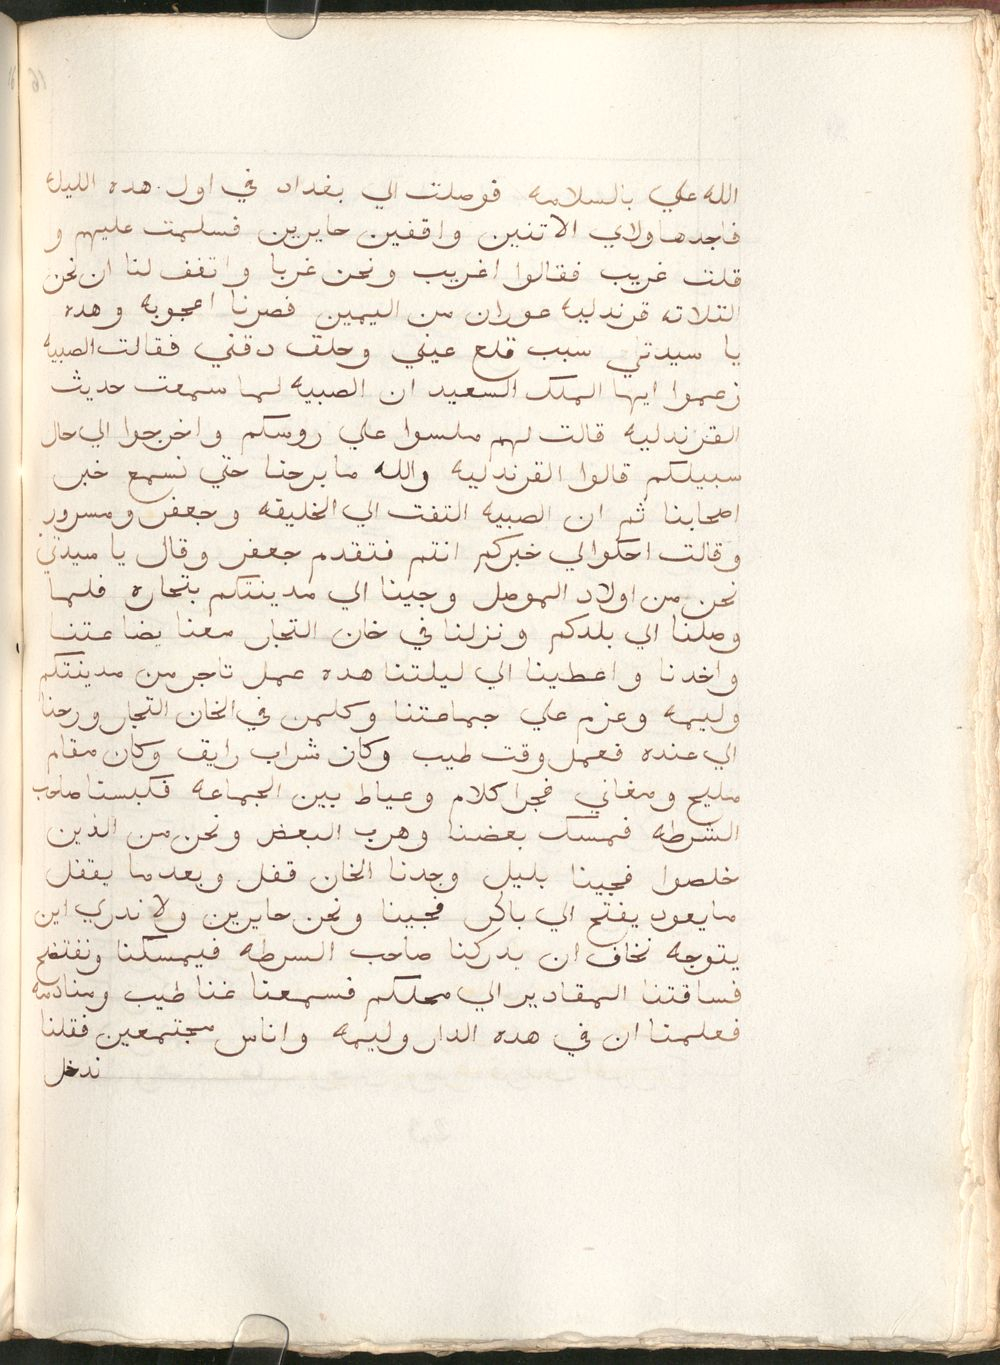 الله علي بالسلامه فوصلت الي بغداد في اول هده الليله
فاجد هاولاي الاتنين واقفين حايرين فسلمت عليهم و
قلت غريب فقالوا اغريب ونحن غربا واتفف لنا ان نحن
التلاته قرندليه عوران من اليمين فصرنا اعجوبه وهده
يا سيدتي سبب قلع عيني وحلق دقني فقالت الصبيه
زعموا ايها الملك السعيد ان الصبيه لما سمعت حديث
القرندليه قالت لهم ملسوا علي روسكم واخرجوا الي حال
سبيلكم قالوا القرندليه والله ما برحنا حتي نسمع خبر
اصحابنا ثم ان الصبيه التفت الي الخليفه وجعفر ومسرور
وقالت احكوا لي خبركم انتم فتقدم جعفر وقال يا سيدتي
نحن من اولاد الموصل وجينا الي مدينتكم بتجاره فلما
وصلنا الي بلدكم ونزلنا في خان التجار معنا بضاعتنا
واخدنا واعطينا الي ليلتنا هده عمل تاجر من مدينتكم
وليمه وعزم علي جماعتنا وكلمن في الخان التجار ورحنا
الي عنده فعمل وقت طيب وكان شراب رايق وكان مقام
مليح ومغاني فجرا كلام وعياط بين الجماعه فكبستا صاحب
الشرطه فمسك بعضنا وهرب البعض ونحن من الذين
خلصوا فجينا بليل وجدنا الخان قفل وبعد ما يقفل
ما يعود يفتح الي باكر فجينا ونحن حايرين ولا ندري اين
يتوجه نخاف ان يدركنا صاحب السرطه فيمسكنا ونفتضح
فساقتنا المقادير الي محلكم فسمعنا غنا طيب ومنادمه
فعلمنا ان في هده الدار وليمه واناس مجتمعين فقلنا
ندخل